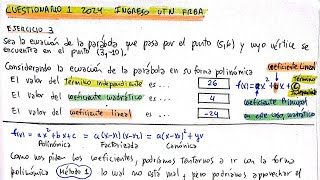 CUESTIONARIO 1 2024 INGRESO UTN FRBA
EJERCICIO 3
Sea la ecuación de la parábola que pasa por el punto (5,6) y cuyo vértice se
encuentra en el punto (3,-10).
Considerando la ecuación de la parábola en su forma polinómica
coeficiente Lineal
El valor del Término Independiente es ... 26
f(x) = ax² + bx + c
Término
Independiente
El valor del coeficiente cuadrático es ... 4
Coeficiente Principal
en este caso, cuadrático
El valor del coeficiente lineal es ... -24
f(x) = ax² + bx + c = a(x-x₁)(x-x₂) = a(x-xv)² + yv
Polinómica Factorizada Canónica
Como nos piden los coeficientes, podríamos tentarnos a ir con la forma
polinómica (Método 1) lo cual no está mal, pero podríamos aprovechar el